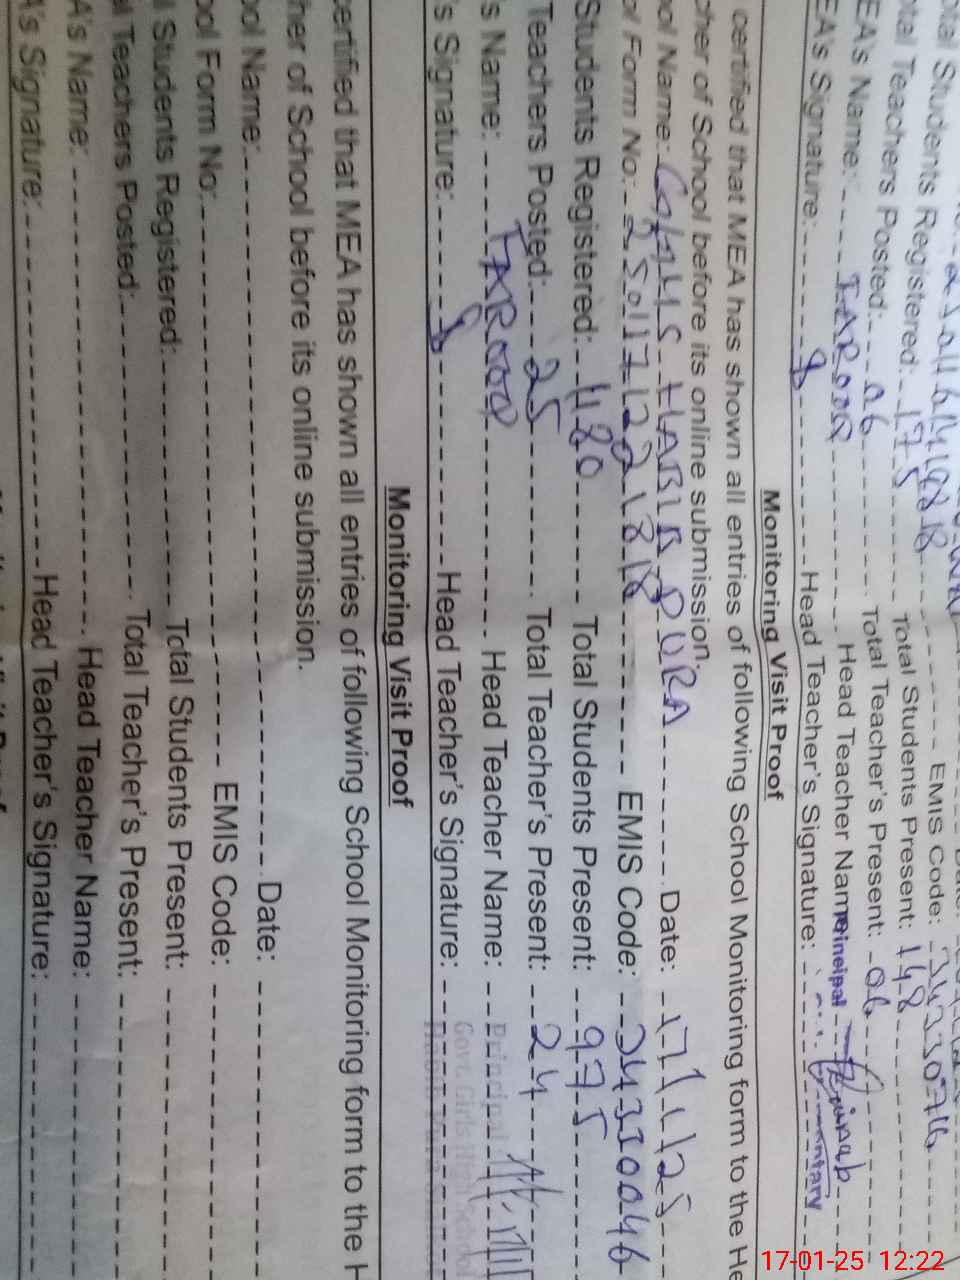 otal Students Registered: 175 Total Students Present: 148
otal Teachers Posted: 06 Total Teacher's Present: 06
EA's Name: FAROOQ Head Teacher Name
EA's Signature: Head Teacher's Signature:
Monitoring Visit Proof
certified that MEA has shown all entries of following School Monitoring form to the He
cher of School before its online submission.
ool Name: GGHS HABIB PURA Date: 17/1/25
ol Form No: EMIS Code: 34330046
Students Registered: 1180 Total Students Present: 975
Teachers Posted: 25 Total Teacher's Present: 24
's Name: FAROOQ Head Teacher Name: Principal
's Signature: Head Teacher's Signature: Govt. Girls High School
Monitoring Visit Proof
certified that MEA has shown all entries of following School Monitoring form to the H
her of School before its online submission.
ool Name: Date:
ool Form No: EMIS Code:
l Students Registered: Total Students Present:
l Teachers Posted: Total Teacher's Present:
A's Name: Head Teacher Name:
A's Signature: Head Teacher's Signature:
17-01-25 12:22